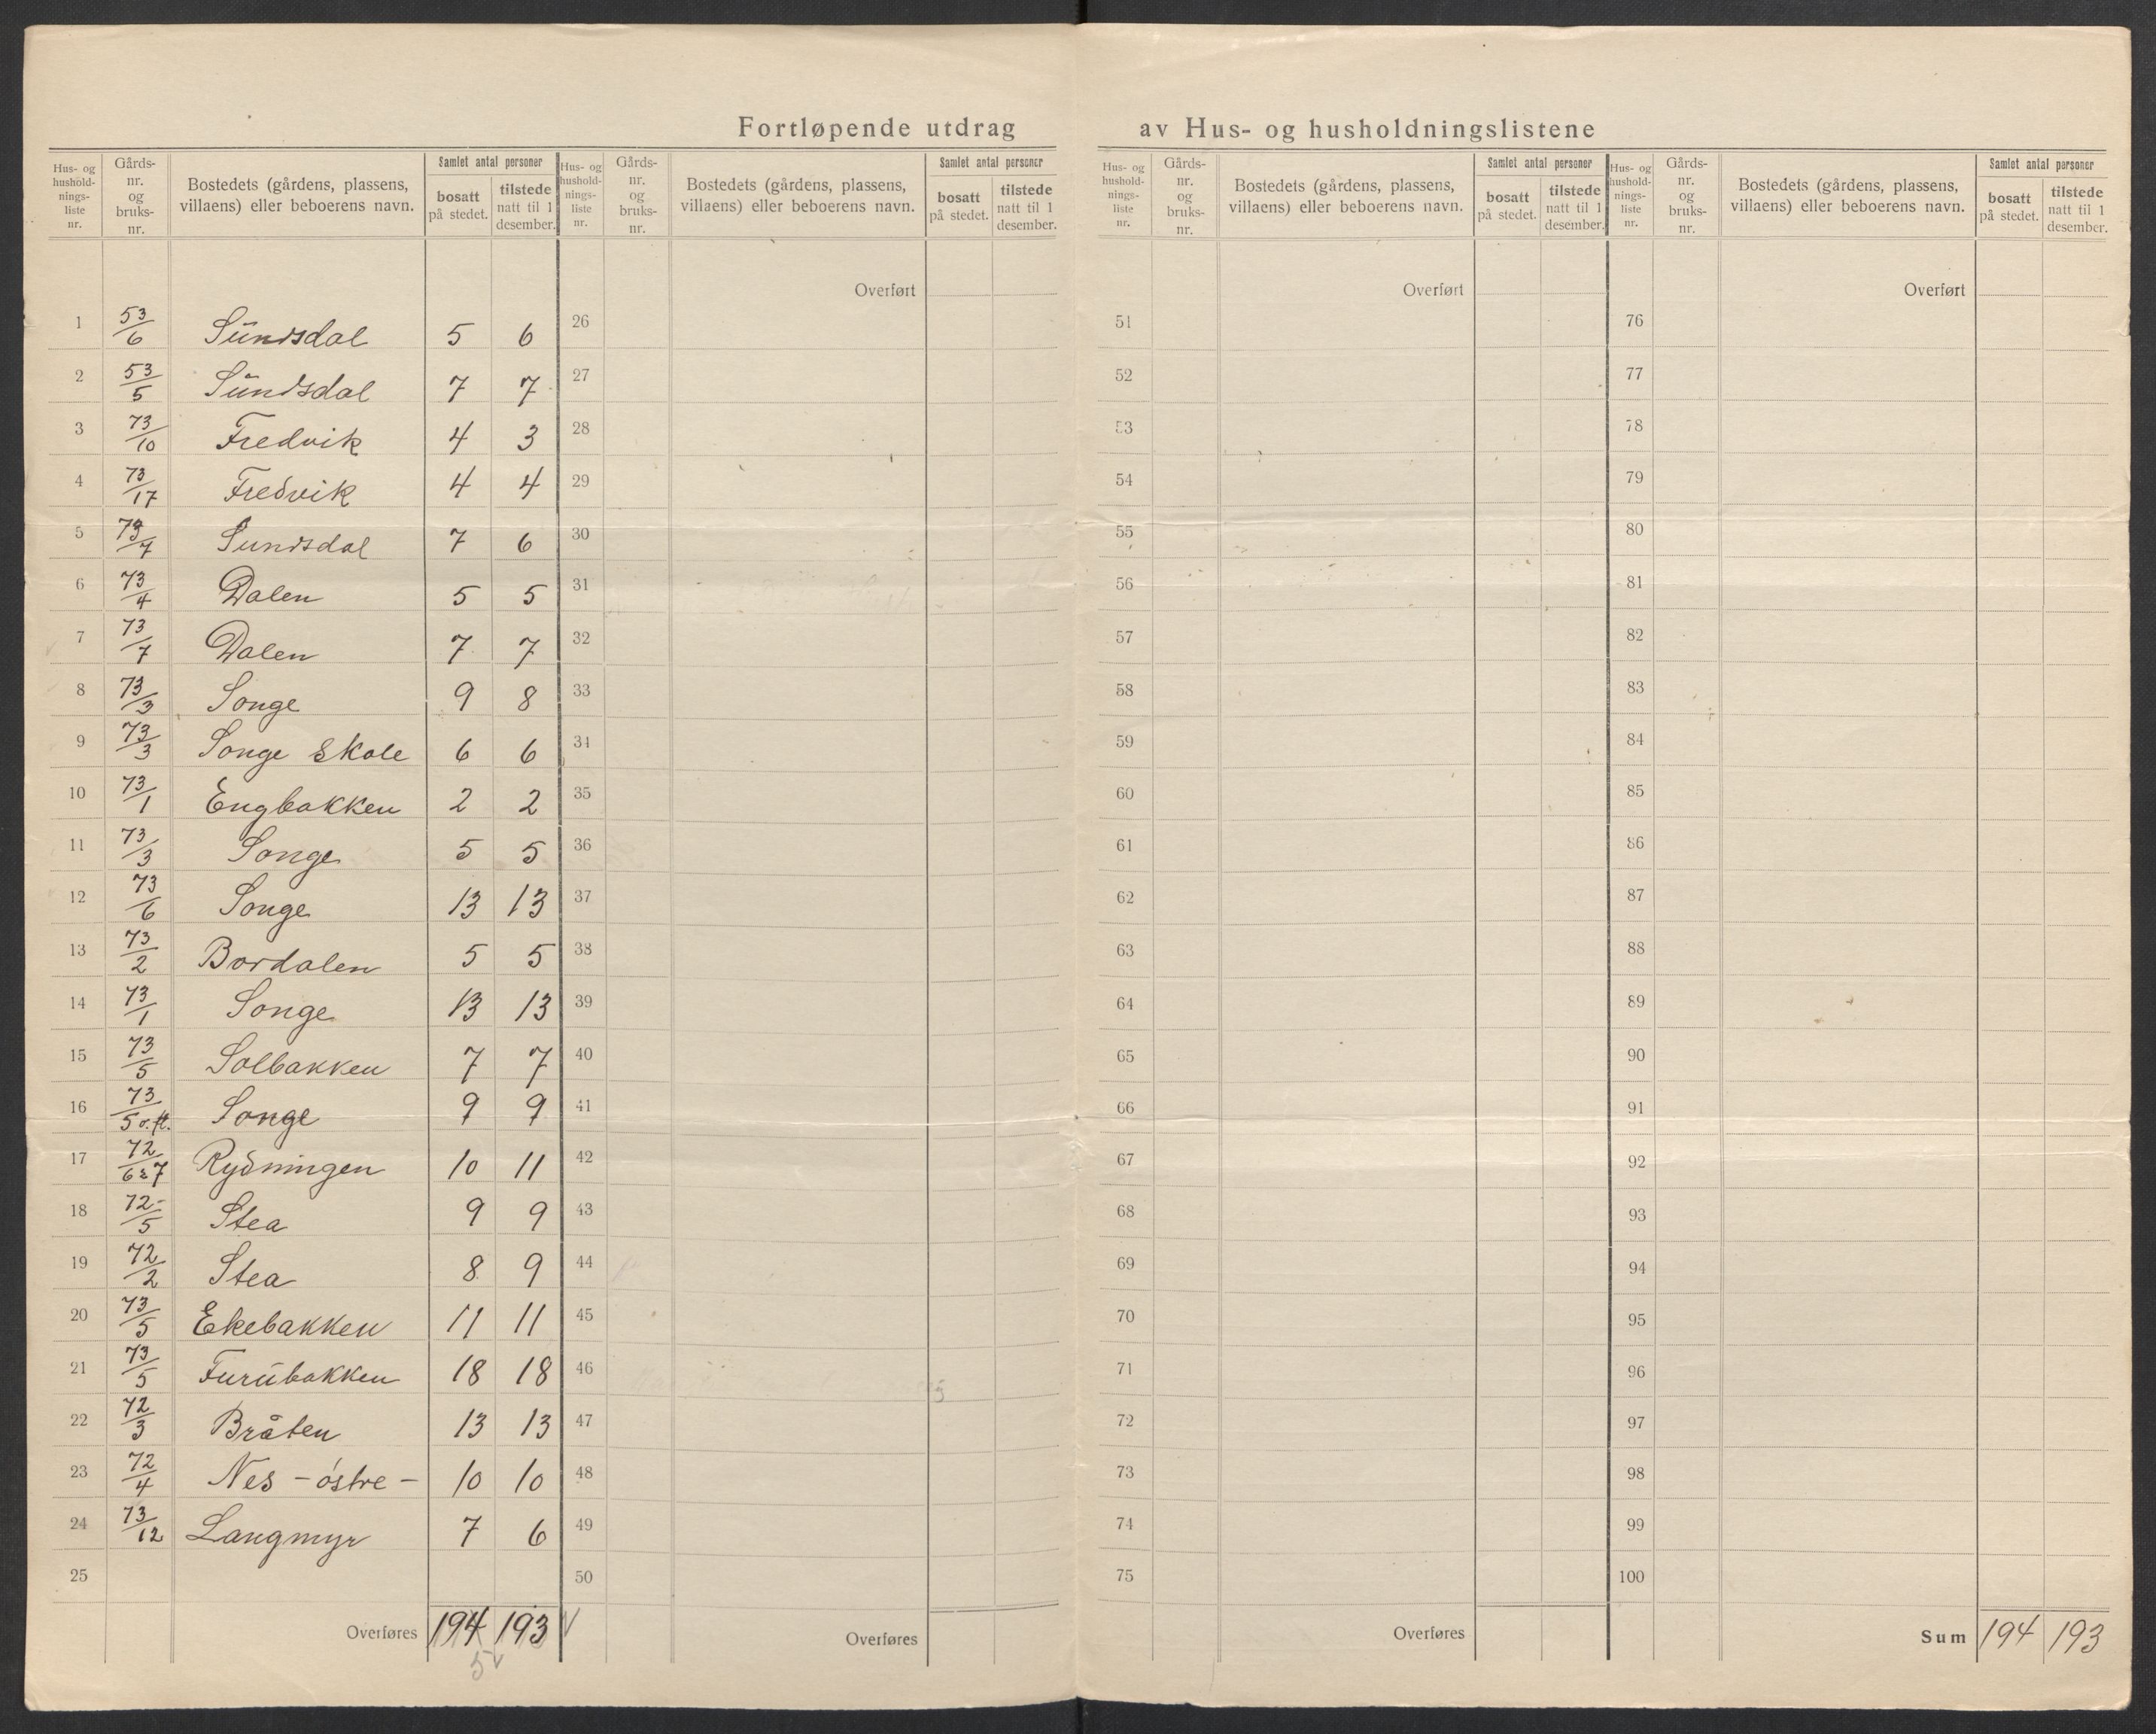 Fortløpende utdrag av Hus- og husholdningslistene
Hus- og hushold-nings-liste nr. | Gårds-nr. og bruks-nr. | Bostedets (gårdens, plassens, villaens) eller beboerens navn. | Samlet antal personer | bosatt på stedet. | tilstede natt til 1 desember.
1 53/6 Sündsdal 5 6
2 53/5 Sündsdal 7 7
3 73/10 Fredvik 4 3
4 73/17 Fredvik 4 4
5 73/7 Sundsdal 7 6
6 73/4 Dalen 5 5
7 73/7 Dalen 7 7
8 73/3 Songe 9 8
9 73/3 Songe Skole 6 6
10 73/1 Engbakken 2 2
11 73/3 Songe 5 5
12 73/6 Songe 13 13
13 73/2 Bordalen 5 5
14 73/1 Songe 13 13
15 73/5 Solbakken 7 7
16 73/5 o. fl. Songe 9 9
17 72/6 & 7 Rydningen 10 11
18 72/5 Stea 9 9
19 72/2 Stea 8 9
20 73/5 Ekebakken 11 11
21 73/5 Furübakken 18 18
22 72/3 Bråten 13 13
23 72/4 Nes - östre - 10 10
24 73/12 Langmyr 7 6
25
Overføres 194 193 √
5 √
Hus- og hushold-nings-liste nr. | Gårds-nr. og bruks-nr. | Bostedets (gårdens, plassens, villaens) eller beboerens navn. | Samlet antal personer | bosatt på stedet. | tilstede natt til 1 desember.
Overført
26
27
28
29
30
31
32
33
34
35
36
37
38
39
40
41
42
43
44
45
46
47
48
49
50
Overføres
Hus- og hushold-nings-liste nr. | Gårds-nr. og bruks-nr. | Bostedets (gårdens, plassens, villaens) eller beboerens navn. | Samlet antal personer | bosatt på stedet. | tilstede natt til 1 desember.
Overført
51
52
53
54
55
56
57
58
59
60
61
62
63
64
65
66
67
68
69
70
71
72
73
74
75
Overføres
Hus- og hushold-nings-liste nr. | Gårds-nr. og bruks-nr. | Bostedets (gårdens, plassens, villaens) eller beboerens navn. | Samlet antal personer | bosatt på stedet. | tilstede natt til 1 desember.
Overført
76
77
78
79
80
81
82
83
84
85
86
87
88
89
90
91
92
93
94
95
96
97
98
99
100
Sum 194 193